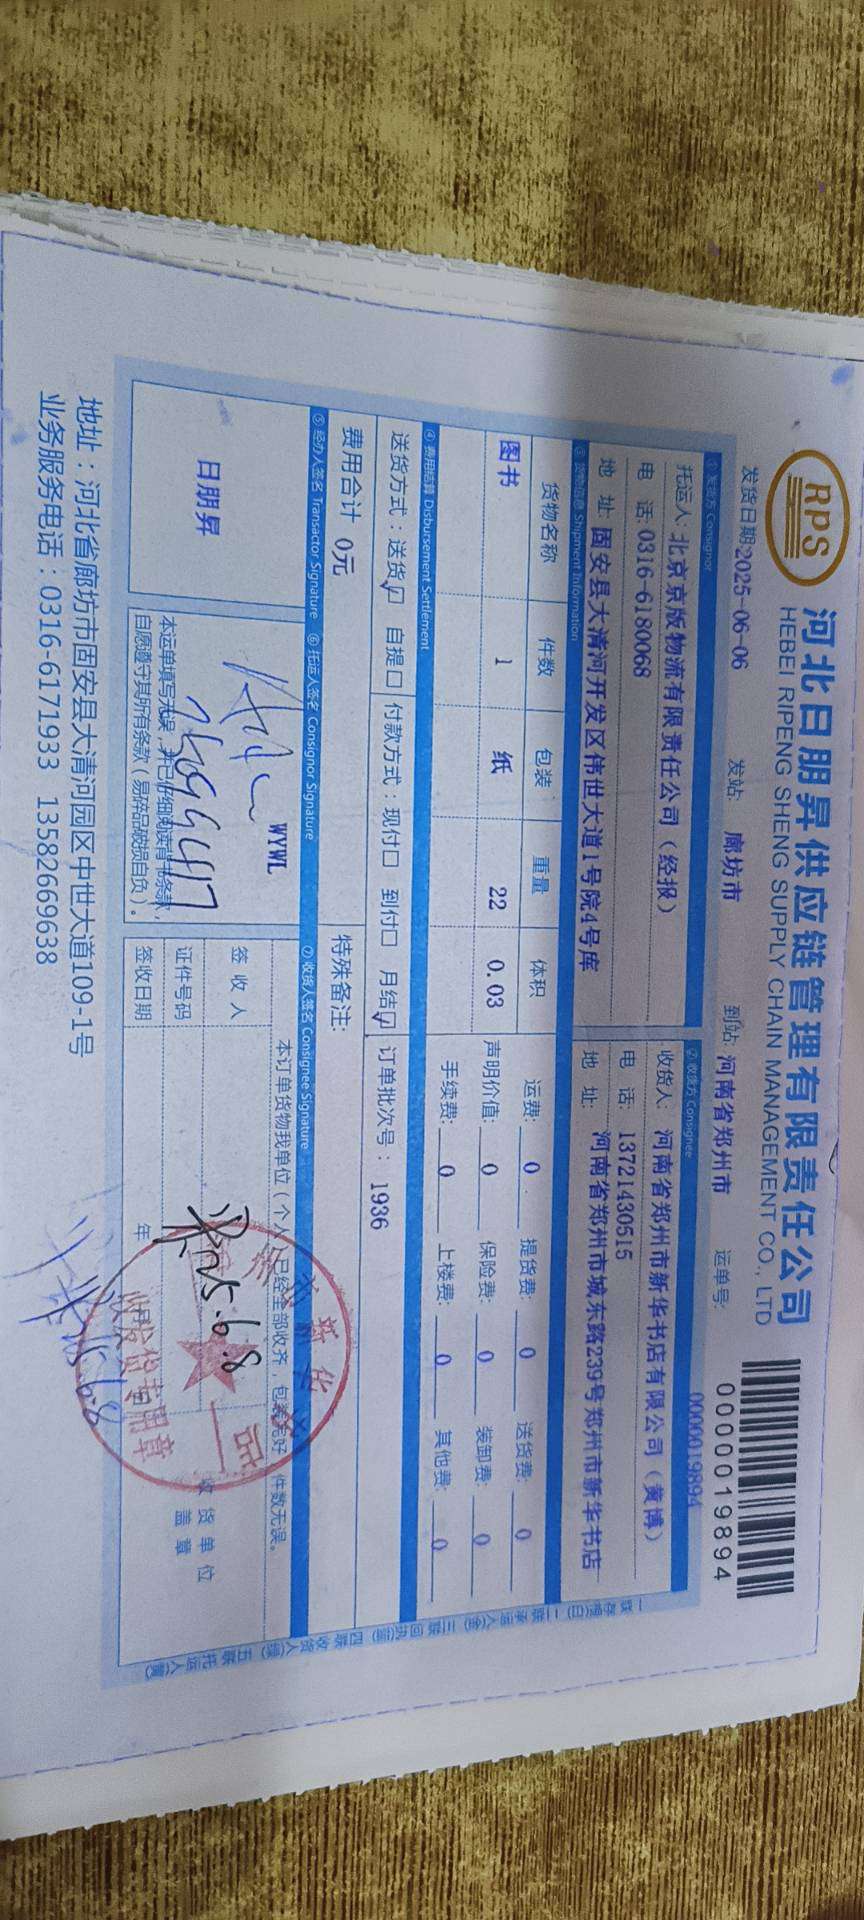 RPS
河北日朋昇供应链管理有限责任公司
HEBEI RIPENG SHENG SUPPLY CHAIN MANAGEMENT CO., LTD
0000019894
0000019894
发货日期:2025-06-06 发站: 廊坊市 到站: 河南省郑州市 运单号:
①发货方 Consignor ②收货方 Consignee
托运人: 北京京版物流有限责任公司（经报） 收货人: 河南省郑州市新华书店有限公司（黄博）
电 话: 0316-6180068 电 话: 13721430515
地 址: 固安县大清河开发区伟世大道1号院4号库 地 址: 河南省郑州市城东路239号郑州市新华书店
③ 货物信息 Shipment Information
货物名称 件数 包装 重量 体积 运费: 0 提货费: 0 送货费: 0
图书 1 纸 22 0.03 声明价值: 0 保险费: 0 装卸费: 0
手续费: 0 上楼费: 0 其他费: 0
④ 费用结算 Disbursement Settlement
送货方式：送货☑ 自提☐ 付款方式：现付☐ 到付☐ 月结☑ 订单批次号：1936
费用合计 0元 特殊备注:
⑤ 经办人签名 Transactor Signature ⑥ 托运人签名 Consignor Signature ⑦ 收货人签名 Consignee Signature
日朋昇
WYWL
本运单填写无误，并已仔细阅读背书条款，
自愿遵守其所有条款（易碎品破损自负）。
本订单货物我单位（个人）已经全部收齐，包装完好，件数无误。
签 收 人
证件号码
签收日期 年
25.6.8
收货单位
盖 章
新华
收发货专用章
25.6.8
地址：河北省廊坊市固安县大清河园区中世大道109-1号
业务服务电话：0316-6171933 13582669638